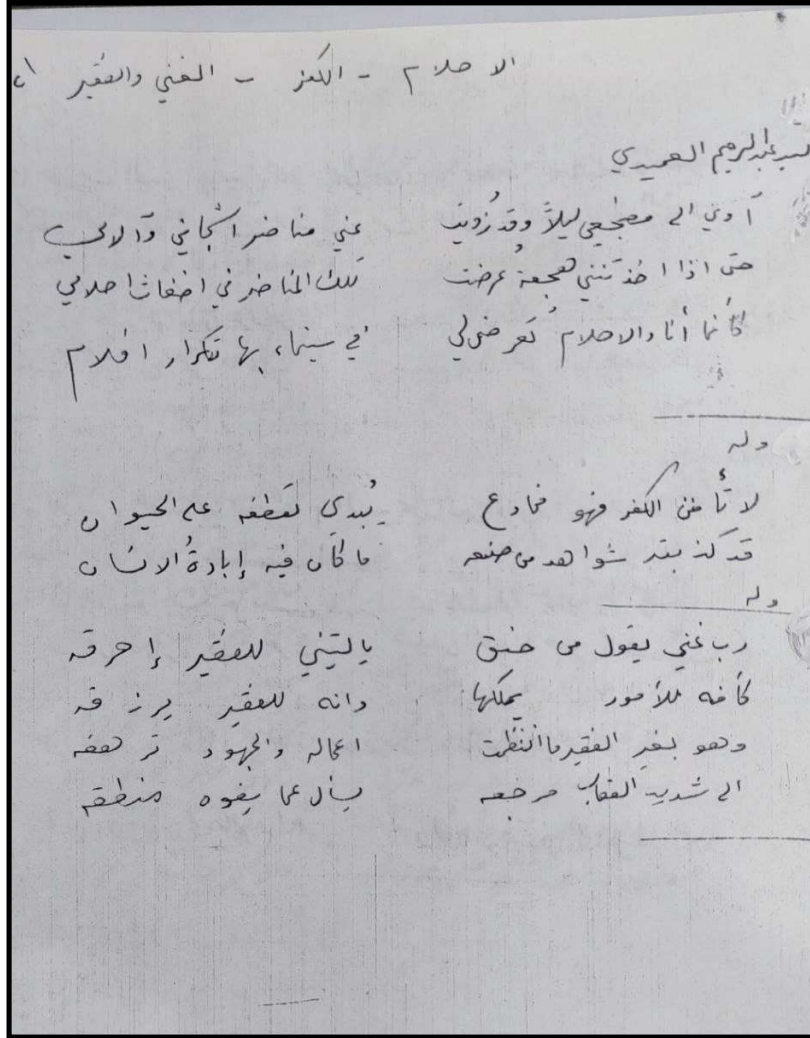 الاحلام - الكفر - الغني والفقير
عبد الرحيم العميدي
آوي الى مضجعي ليلاً وقد زُويت عني مناضر اشجاني وآلامي
حتى اذا اخذتني هجعةٌ عرضت تلك المناضر في اضغاث احلامي
كأنما أنا والاحلامُ تعرض لي في سينماء بها تكرار افلام
وله
لا تأمنن الكفر فهو مخادع يُبدي تعطفه على الحيوان
قد كذبته شواهد من صنعه ما كان فيه إبادةُ الانسان
وله
رب غني يقول من حنق ياليتني للفقير إحرقه
كأنه للأمور يملكها وانه للفقير يرزقه
وهو بغير الفقير ما انتظمت اعماله والجهود ترهقه
الى شديد العقاب مرجعه يسأل عما يفوه منطقه